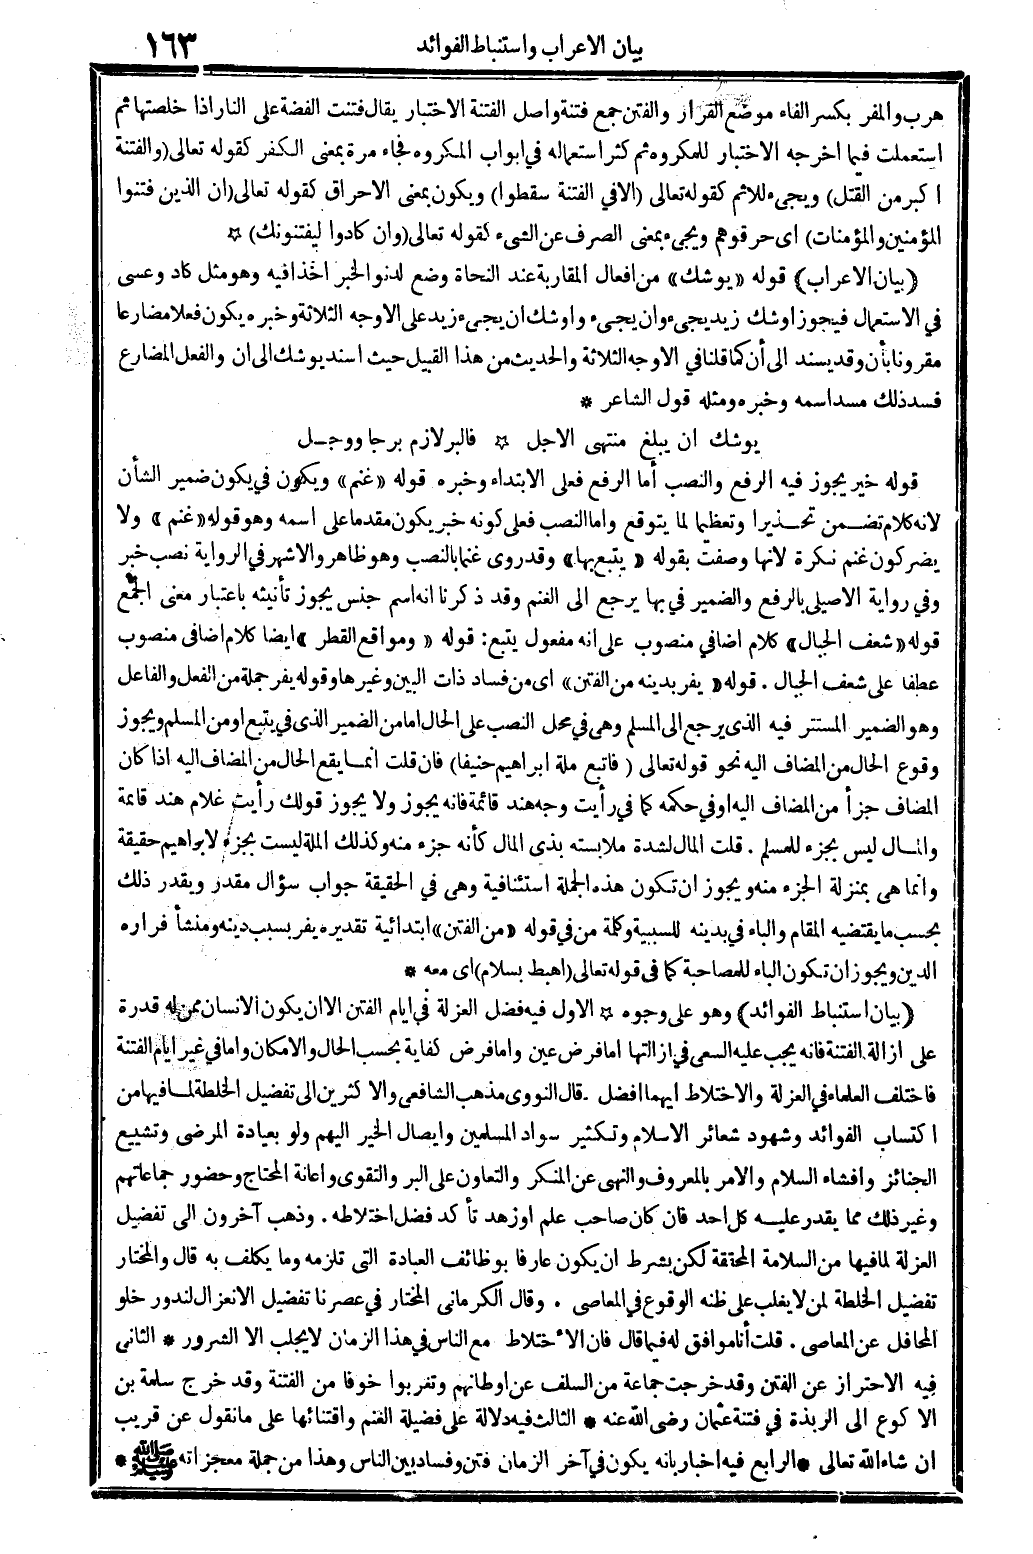 بيان الاعراب واستنباط الفوائد ١٦٣
هرب والمفر بكسر الفاء موضع القرار والفتن جمع فتنة واصل الفتنة الاختبار يقال فتنت الفضة على النار اذا خلصتها ثم
استعملت فيما اخرجه الاختبار للمكروه ثم كثر استعماله في ابواب المكروه فجاء مرة بمعنى الكفر كقوله تعالى (والفتنة
اكبر من القتل) ويجيء للاثم كقوله تعالى (الا في الفتنة سقطوا) ويكون بمعنى الاحراق كقوله تعالى (ان الذين فتنوا
المؤمنين والمؤمنات) اى حرقوهم ويجيء بمعنى الصرف عن الشيء كقوله تعالى (وان كادوا ليفتنونك) ☆
(بيان الاعراب) قوله «يوشك» من افعال المقاربة عند النحاة وضع لدنو الخبر اخذا فيه وهو مثل كاد وعسى
في الاستعمال فيجوز اوشك زيد يجيء وان يجيء واوشك ان يجيء زيد على الاوجه الثلاثة وخبره يكون فعلا مضارعا
مقرونا بأن وقد يسند الى أن كما قلنا في الاوجه الثلاثة والحديث من هذا القبيل حيث اسند يوشك الى ان والفعل المضارع
فسد ذلك مسد اسمه وخبره ومثله قول الشاعر *
يوشك ان يبلغ منتهى الاجل ☆ فالبر لازم برجا ووجـل
قوله خير يجوز فيه الرفع والنصب أما الرفع فعلى الابتداء وخبره قوله «غنم» ويكون في يكون ضمير الشأن
لانه كلام تضمن تحـذيرا وتعظيما لما يتوقع واما النصب فعلى كونه خبر يكون مقدما على اسمه وهو قوله «غنم» ولا
يضر كون غنم نكرة لانها وصفت بقوله «يتبع بها» وقد روى غنما بالنصب وهو ظاهر والاشهر في الرواية نصب خبر
وفي رواية الاصيلى بالرفع والضمير في بها يرجع الى الغنم وقد ذكرنا انه اسم جنس يجوز تأنيثه باعتبار معنى الجمع
قوله «شعف الجبال» كلام اضافي منصوب على انه مفعول يتبع: قوله «ومواقع القطر» ايضا كلام اضافى منصوب
عطفا على شعف الجبال . قوله «يفر بدينه من الفتن» اى من فساد ذات البين وغيرها وقوله يفر جملة من الفعل والفاعل
وهو الضمير المستتر فيه الذى يرجع الى المسلم وهى في محل النصب على الحال اما من الضمير الذى في يتبع او من المسلم ويجوز
وقوع الحال من المضاف اليه نحو قوله تعالى (فاتبع ملة ابراهيم حنيفا) فان قلت انما يقع الحال من المضاف اليه اذا كان
المضاف جزأ من المضاف اليه او في حكمه كما في رأيت وجه هند قائمة فانه يجوز ولا يجوز قولك رأيت غلام هند قائمة
والمـال ليس بجزء للمسلم . قلت المال لشدة ملابسته بذى المال كأنه جزء منه وكذلك الملة ليست بجزء لابراهيم حقيقة
وانما هى بمنزلة الجزء منه ويجوز ان تكون هذه الجملة استئنافية وهى في الحقيقة جواب سؤال مقدر ويقدر ذلك
بحسب ما يقتضيه المقام والباء في بدينه للسببية وكلمة من في قوله «من الفتن» ابتدائية تقديره يفر بسبب دينه ومنشأ فراره
الدين ويجوز ان تكون الباء للمصاحبة كما فى قوله تعالى (اهبط بسلام) اى معه *
(بيان استنباط الفوائد) وهو على وجوه ☆ الاول فيه فضل العزلة في ايام الفتن الا ان يكون الانسان ممن له قدرة
على ازالة الفتنة فانه يجب عليه السعى في ازالتها اما فرض عين واما فرض كفاية بحسب الحال والامكان واما في غير ايام الفتنة
فاختلف العلماء في العزلة والاختلاط ايهما افضل . قال النووى مذهب الشافعى والاكثرين الى تفضيل الخلطة لمـا فيها من
اكتساب الفوائد وشهود شعائر الاسلام وتكثير سواد المسلمين وايصال الخير اليهم ولو بعيادة المرضى وتشييع
الجنائز وافشاء السلام والامر بالمعروف والنهى عن المنكر والتعاون على البر والتقوى واعانة المحتاج وحضور جماعاتهم
وغير ذلك مما يقدر عليه كل احد فان كان صاحب علم او زهد تأكد فضل اختلاطه . وذهب آخرون الى تفضيل
العزلة لما فيها من السلامة المحققة لكن بشرط ان يكون عارفا بوظائف العبادة التى تلزمه وما يكلف به قال والمختار
تفضيل الخلطة لمن لا يغلب على ظنه الوقوع في المعاصى . وقال الكرمانى المختار في عصرنا تفضيل الانعزال لندور خلو
المحافل عن المعاصى . قلت أنا موافق له فيما قال فان الاختلاط مع الناس في هذا الزمان لا يجلب الا الشرور * الثانى
فيه الاحتراز عن الفتن وقد خرجت جماعة من السلف عن اوطانهم وتغربوا خوفا من الفتنة وقد خرج سلمة بن
الاكوع الى الربذة في فتنة عثمان رضى الله عنه * الثالث فيه دلالة على فضيلة الغنم واقتنائها على ما نقول عن قريب
ان شاء الله تعالى * الرابع فيه اخبار بانه يكون في آخر الزمان فتن وفساد بين الناس وهذا من جملة معجزاته ﷺ *